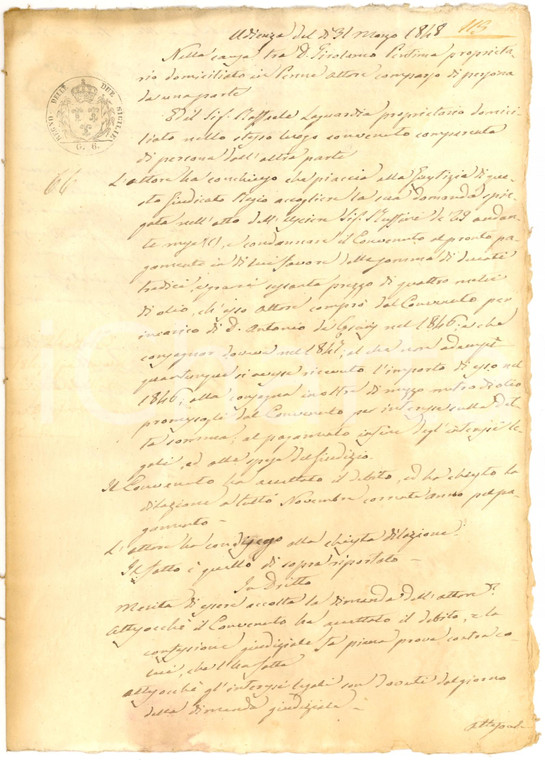 Udienza del dì 31 Marzo 1848
113
Nella causa tra D. Girolamo Pentima proprieta-
rio domiciliato in Penne attore comparso di persona
da una parte
Ed il Sig. Raffaele Laguardia proprietario domici-
liato nello stesso luogo convenuto comparso
di persona dall'altra parte
REGNO DELLE DUE SICILIE
G. 6.
66
L'attore ha conchiuso che piaccia alla Giustizia di que-
sto Giudicato Regio accogliere la sua domanda spie-
gata nell'atto dell'Usciere Sig. Ruffini de' 28 andan-
te mese, e condannare il Convenuto al pronto pa-
gamento in di lui favore della somma di ducati
tredici, e grani sessanta prezzo di quattro metri
di olio, ch'esso attore comprò dal Convenuto per
incarico di D. Antonio de nel 1846, e che
consegnar doveva nel 1847, al che non adempì
quantunque si avesse ricevuto l'importo di esso nel
1846; alla consegna inoltre di mezzo metro di olio
promessogli dal Convenuto per interesse sulla det-
ta somma, al pagamento infine degl'interessi le-
gali, ed alle spese del Giudizio.
Il Convenuto ha accettato il debito, ed ha chiesto la
dilazione a tutto Novembre corrente anno pel pa-
gamento —
L'attore ha condisceso alla chiesta dilazione.
Il fatto è quello di sopra riportato —
In Dritto
Merita di essere accolta la dimanda dell'attore?
Attesocchè il Convenuto ha accettato il debito, e la
confessione giudiziale fa piena prova contro co-
lui, che l'ha fatta
Attesocchè gl'interessi legali son dovuti dal giorno
della dimanda giudiziale —